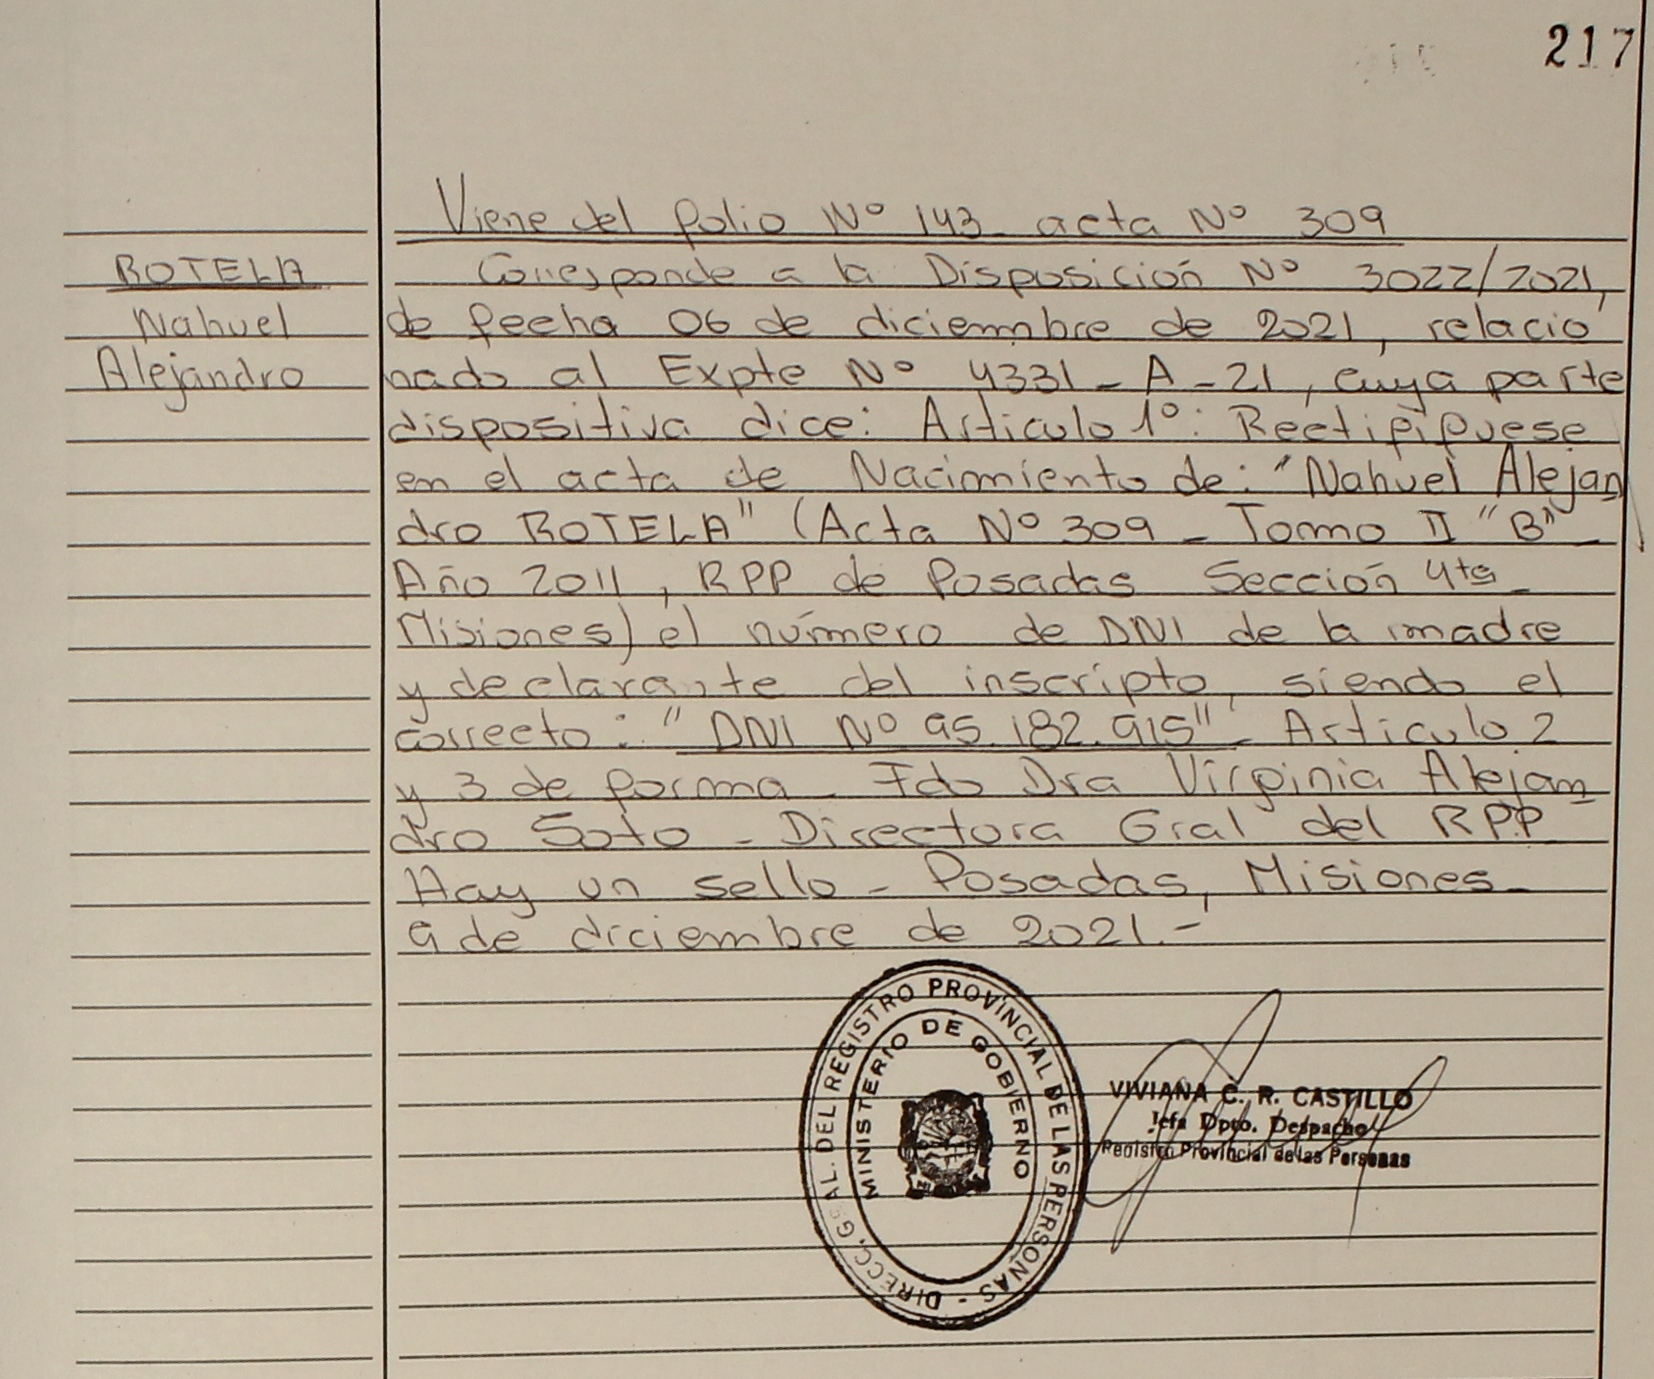 217
Viene del folio Nº 143 acta Nº 309
ROTELA
Nahuel
Alejandro
Corresponde a la Disposición Nº 3022/2021,
de fecha 06 de diciembre de 2021, relacio
nado al Expte Nº 4331-A-21, cuya parte
dispositiva dice: Articulo 1º: Rectifiquese
en el acta de Nacimiento de: "Nahuel Alejan
dro ROTELA" (Acta Nº 309 - Tomo II "B" -
Año 2011, RPP de Posadas Sección 4ta -
Misiones) el número de DNI de la madre
y declarante del inscripto, siendo el
correcto: "DNI Nº 95.182.915" - Articulo 2
y 3 de forma - Fdo Dra Virginia Alejan
dro Soto - Directora Gral del RPP
Hay un sello - Posadas, Misiones -
9 de diciembre de 2021.-
DIRECC. GRAL. DEL REGISTRO PROVINCIAL DE LAS PERSONAS -
MINISTERIO DE GOBIERNO
VIVIANA C. R. CASTILLO
Jefa Dpto. Despacho
Registro Provincial de las Personas